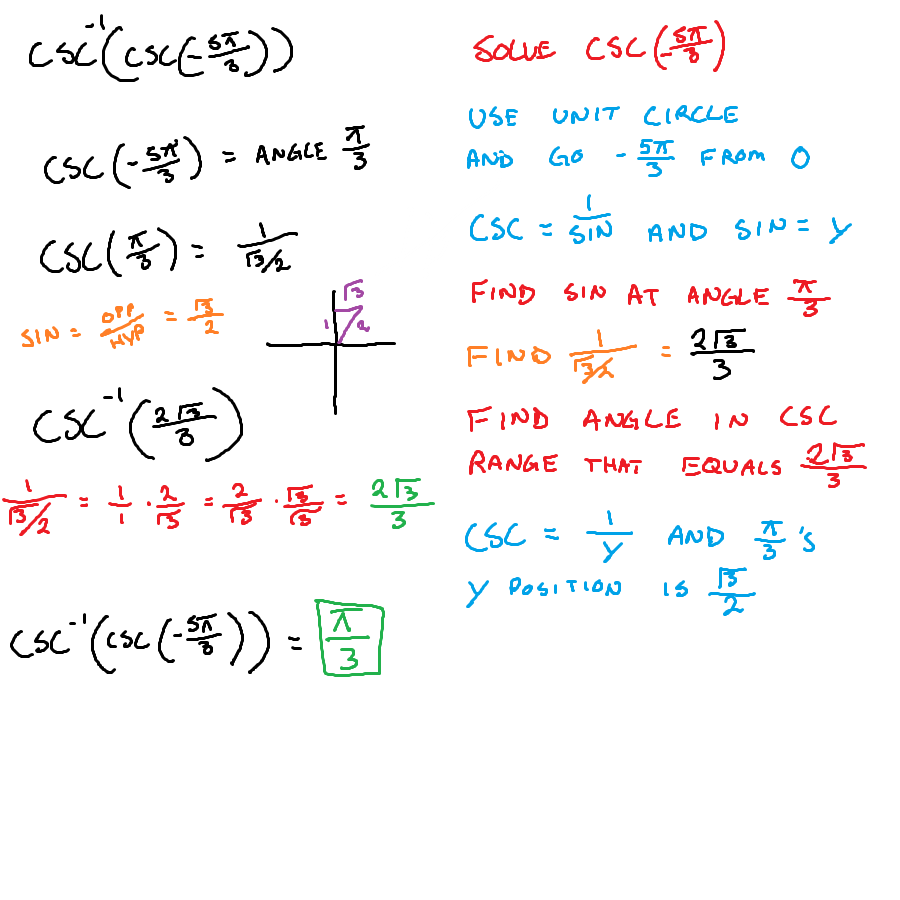 CSC⁻¹(CSC(-5π/3))
CSC(-5π/3) = ANGLE π/3
CSC(π/3) = 1/(√3/2)
SIN = OPP/HYP = √3/2
√3
1
2
CSC⁻¹(2√3/3)
1/(√3/2) = 1/1 · 2/√3 = 2/√3 · √3/√3 = 2√3/3
CSC⁻¹(CSC(-5π/3)) = π/3
SOLVE CSC(-5π/3)
USE UNIT CIRCLE
AND GO -5π/3 FROM 0
CSC = 1/SIN AND SIN = Y
FIND SIN AT ANGLE π/3
FIND 1/(√3/2) = 2√3/3
FIND ANGLE IN CSC
RANGE THAT EQUALS 2√3/3
CSC = 1/Y AND π/3'S
Y POSITION IS √3/2